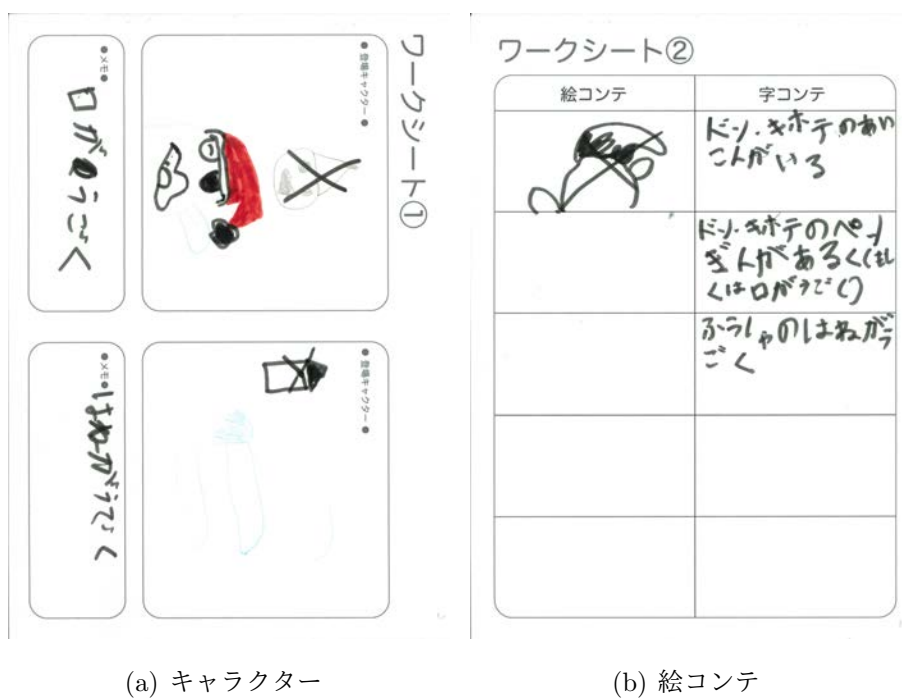 ワークシート①
●登場キャラクター●
●メモ●
口がうごく
●登場キャラクター●
●メモ●
はねがうごく
(a) キャラクター
ワークシート②
絵コンテ
字コンテ
ドン・キホテのあい
こんがいる
ドン・キホテのペン
ぎんがあるく(もし
くは口がうごく)
ふうしゃのはねがう
ごく
(b) 絵コンテ